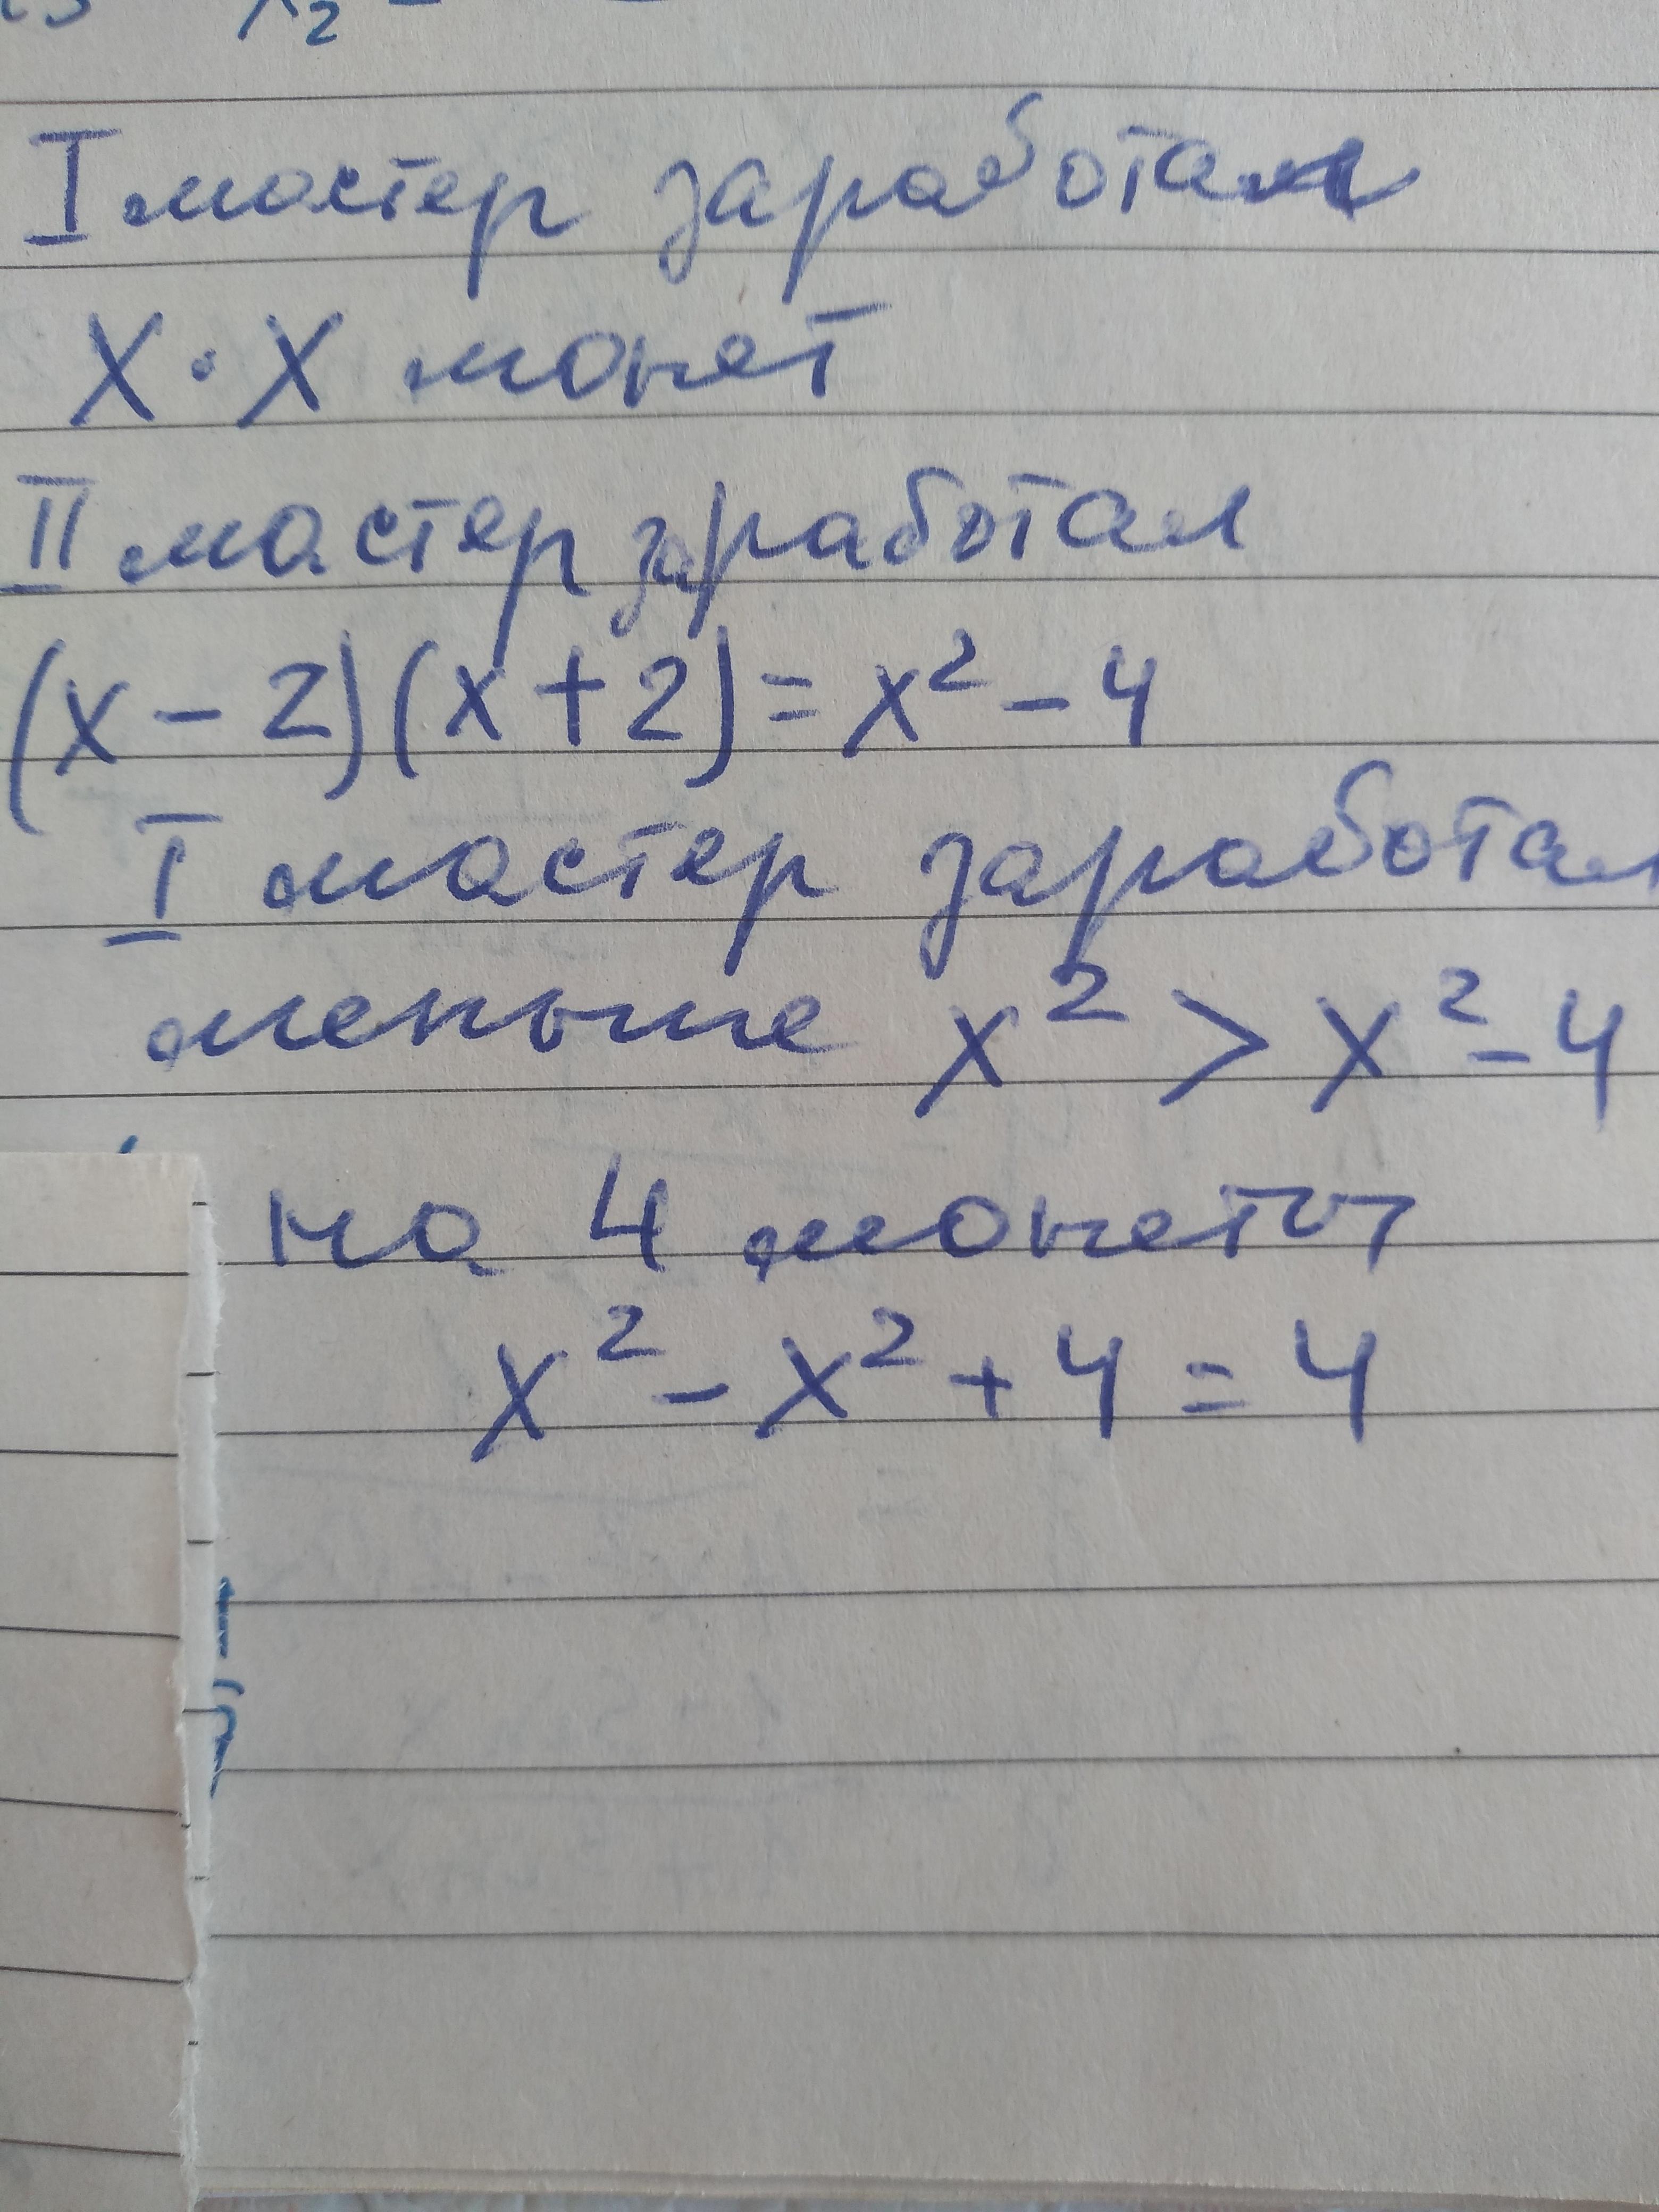 I мастер заработал
X · X монет
II мастер заработал
(x - 2)(x + 2) = x² - 4
I мастер заработал
меньше x² > x² - 4
на 4 монеты
x² - x² + 4 = 4